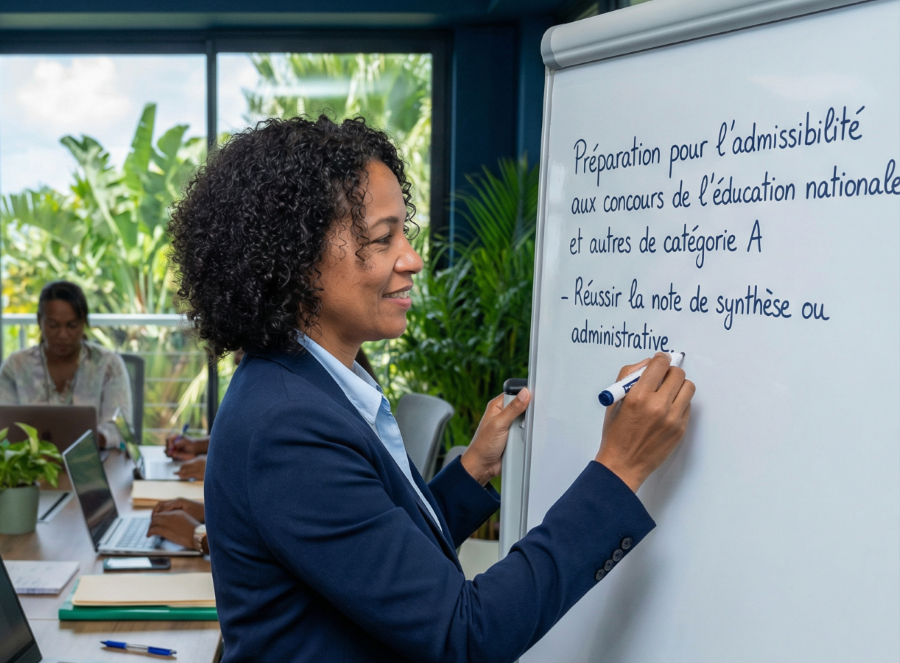 Préparation pour l'admissibilité
aux concours de l'éducation nationale
et autres de catégorie A
- Réussir la note de synthèse ou
administrative.